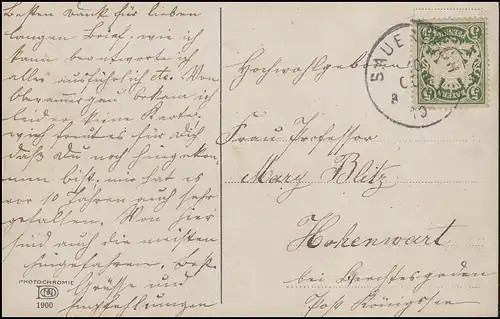 Besten Dank für lieben
langen Brief, wie ich
kann beantworte ich
alles ausführlich etc. Von
Oberammergau bekam ich
leider keine Karte.
mich freut es für dich
daß du noch hingekom-
men bist, mir hat es
vor 10 Jahren auch sehr
gefallen. Von hier
sind auch die meisten
hingefahren. Best.
Grüsse und
Empfehlungen
PHOTOCHROMIE
1900
BAYERN
5
5
5
5
10
Hochwohlgeboren
Frau Professor
Mary Blitz
Hohenwart
bei Berchtesgaden
Post Königssee